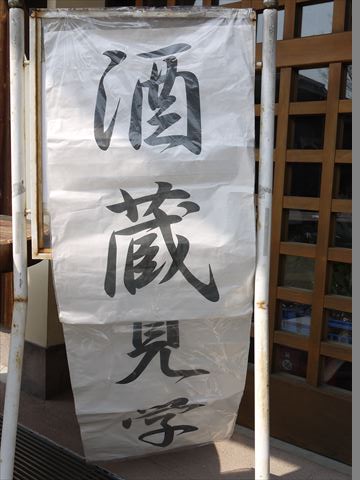 酒蔵見学